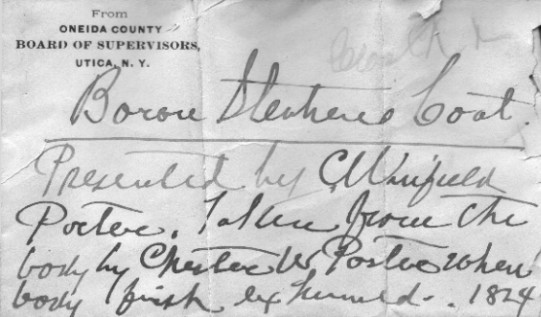 From
ONEIDA COUNTY
BOARD OF SUPERVISORS,
UTICA, N. Y.
Baron Steubens Coat.
Presented by C. Winfield
Porter. Taken from the
body by Chester W Porter when
body first exhumed. 1824